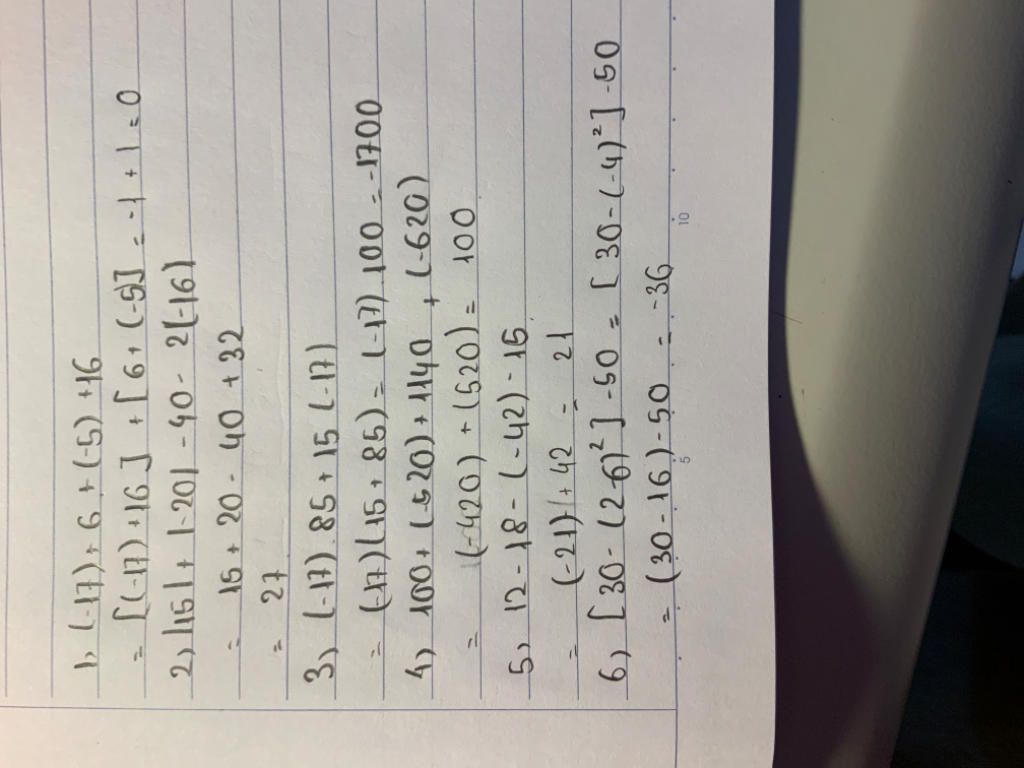 1, (-17) + 6 + (-5) + 16
= [(-17) + 16] + [6 + (-5)] = -1 + 1 = 0
2) |15| + |-20| - 40 - 2(-16)
= 15 + 20 - 40 + 32
= 27
3) (-17) . 85 + 15 (-17)
= (-17) (15 + 85) = (-17) 100 = -1700
4) 100 + (-520) + 1140 + (-620)
= (-420) + (520) = 100
5) 12 - 18 - (-42) - 15
= (-21) + 42 = 21
6) [30 - (2-6)²] - 50 = [30 - (-4)²] - 50
= (30 - 16) - 50 = -36
5
10